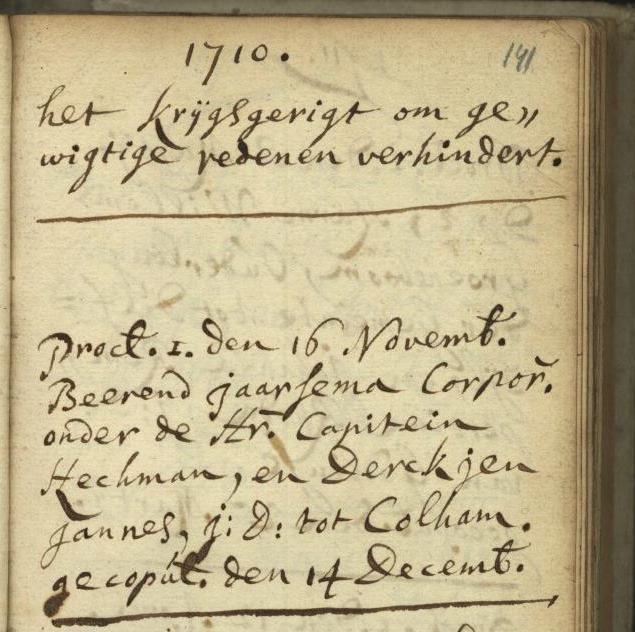 1710.
141
het krijgsgerigt om ge„
wigtige redenen verhindert.
Procl. 1. den 16 Novemb.
Beerend jaarsema Corpor.
onder de Hr. Capitein
Hechman, en Derckjen
jannes, j: D: tot Colham.
gecopul. den 14 Decemb.